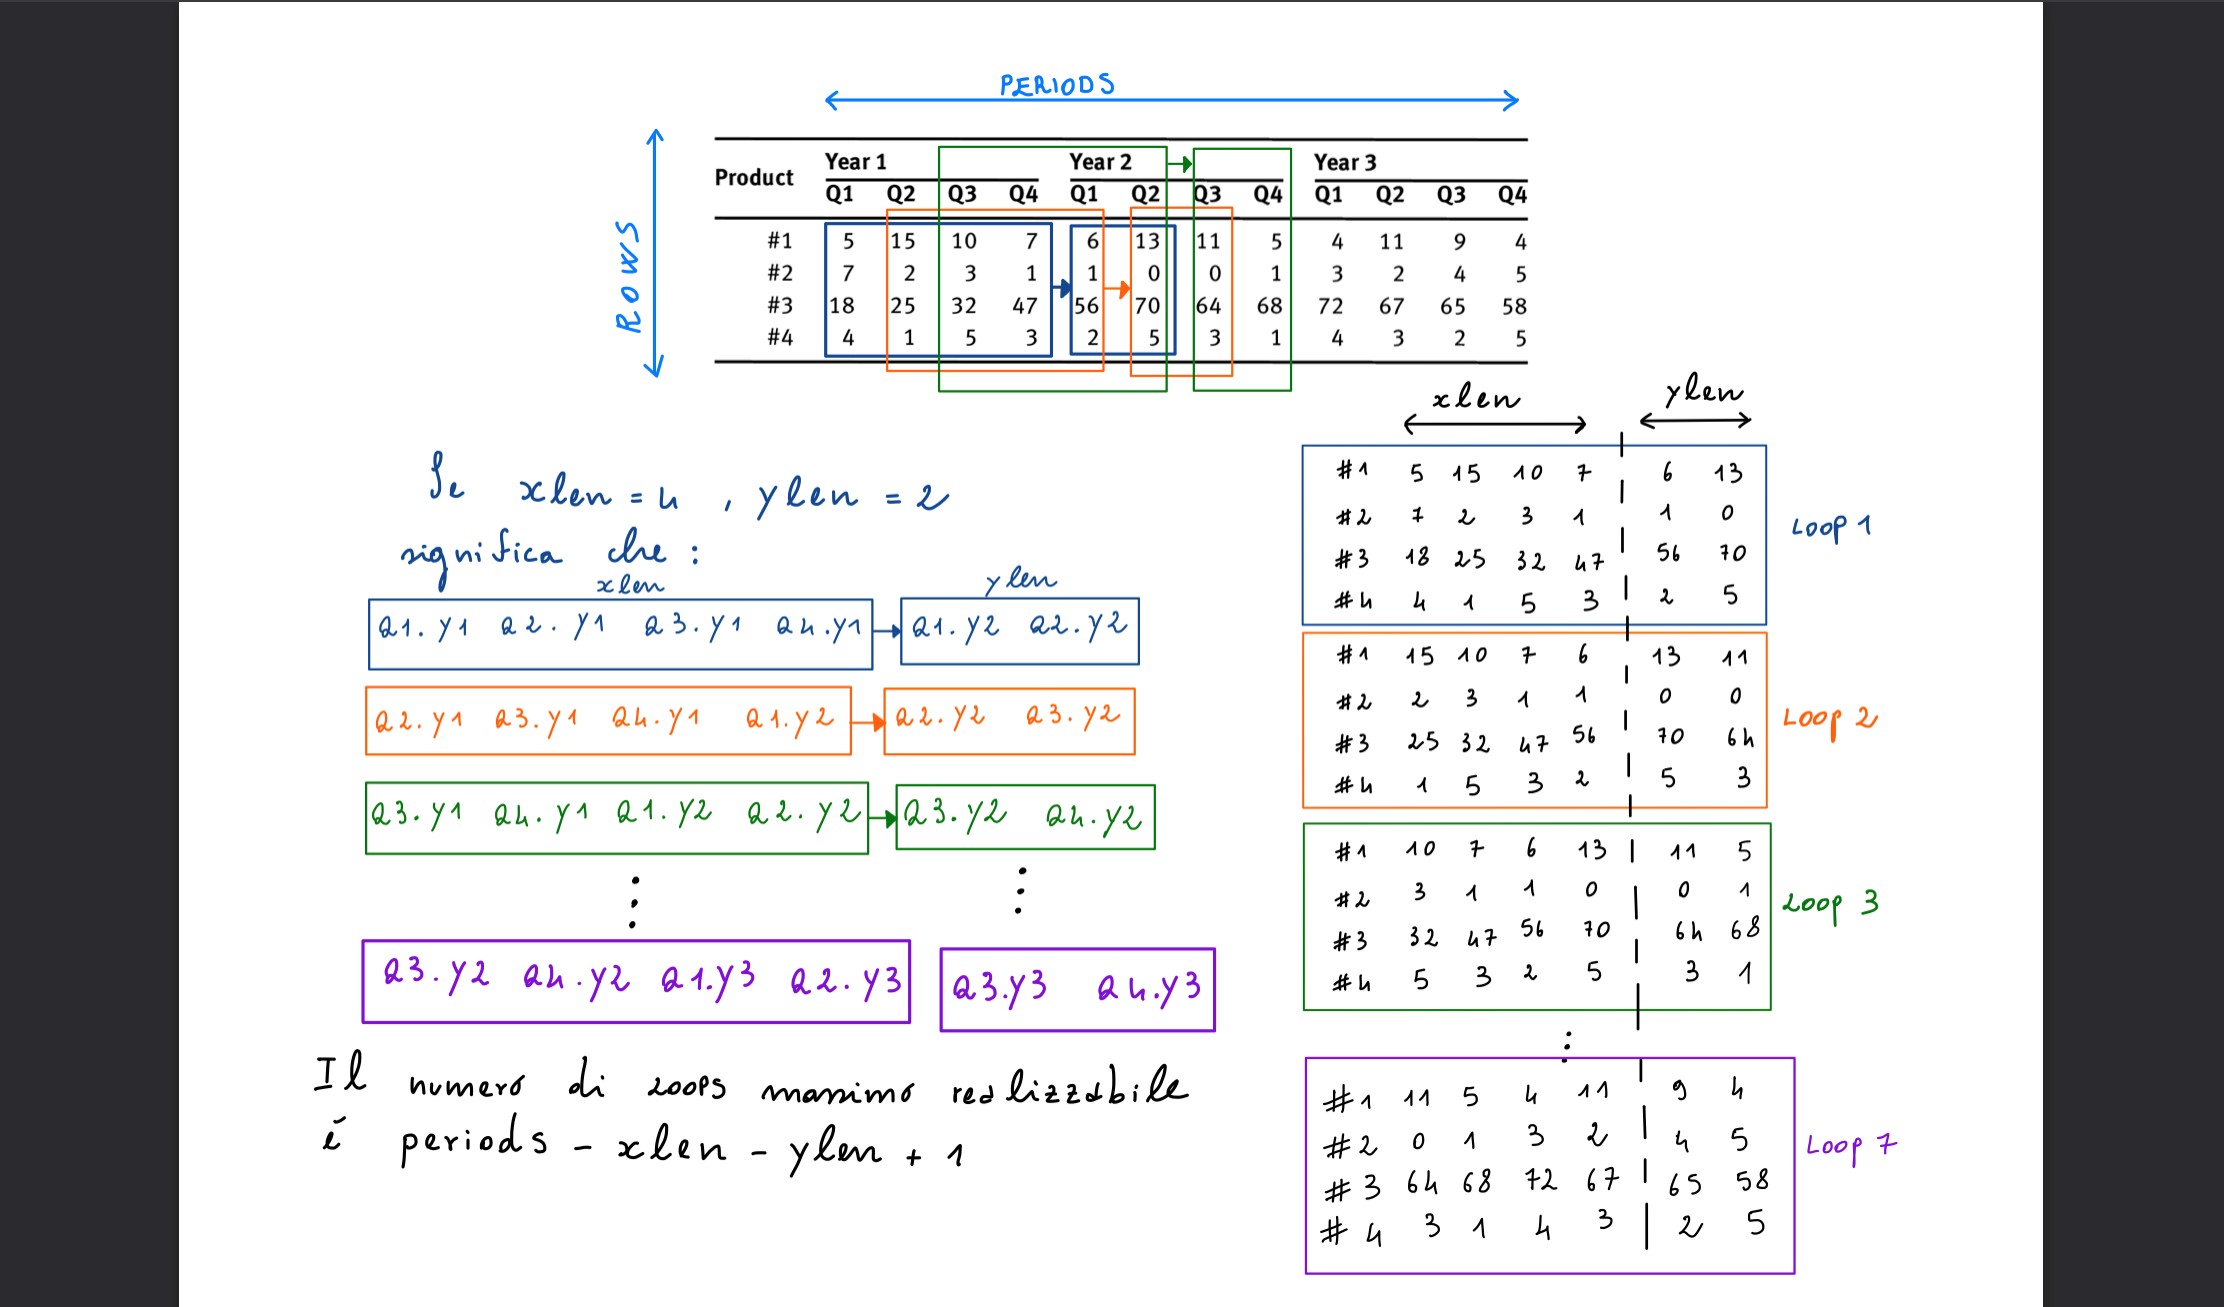 PERIODS
ROWS
Product Year 1 Year 2 Year 3
Q1 Q2 Q3 Q4 Q1 Q2 Q3 Q4 Q1 Q2 Q3 Q4
#1 5 15 10 7 6 13 11 5 4 11 9 4
#2 7 2 3 1 1 0 0 1 3 2 4 5
#3 18 25 32 47 56 70 64 68 72 67 65 58
#4 4 1 5 3 2 5 3 1 4 3 2 5
Se xlen = 4 , ylen = 2
significa che :
xlen ylen
Q1.Y1 Q2.Y1 Q3.Y1 Q4.Y1 Q1.Y2 Q2.Y2
Q2.Y1 Q3.Y1 Q4.Y1 Q1.Y2 Q2.Y2 Q3.Y2
Q3.Y1 Q4.Y1 Q1.Y2 Q2.Y2 Q3.Y2 Q4.Y2
Q3.Y2 Q4.Y2 Q1.Y3 Q2.Y3 Q3.Y3 Q4.Y3
Il numero di loops massimo realizzabile
è periods - xlen - ylen + 1
xlen ylen
#1 5 15 10 7 6 13
#2 7 2 3 1 1 0
#3 18 25 32 47 56 70
#4 4 1 5 3 2 5
Loop 1
#1 15 10 7 6 13 11
#2 2 3 1 1 0 0
#3 25 32 47 56 70 64
#4 1 5 3 2 5 3
Loop 2
#1 10 7 6 13 11 5
#2 3 1 1 0 0 1
#3 32 47 56 70 64 68
#4 5 3 2 5 3 1
Loop 3
#1 11 5 4 11 9 4
#2 0 1 3 2 4 5
#3 64 68 72 67 65 58
#4 3 1 4 3 2 5
Loop 7